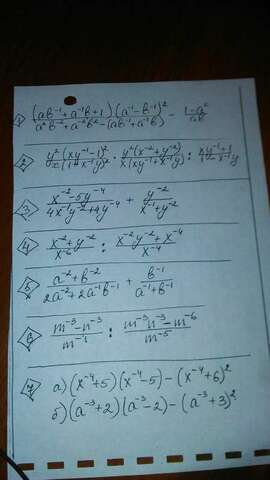 1 (ab⁻¹+a⁻¹b+1)(a⁻¹-b⁻¹)² / a²b⁻²+a⁻²b²-(ab⁻¹+a⁻¹b) - 1-a² / ab
2 y²(xy⁻¹-1)² / x(1+x⁻¹y)² · y²(x⁻²+y⁻²) / x(xy⁻¹+x⁻¹y) :
3 x⁻²-5y⁻⁴ / 4x⁻¹y⁻²+4y⁻⁴ + y⁻² / x⁻¹+y⁻²
4 x⁻²+y⁻² / x⁻⁶ : x⁻²y⁻²+x⁻⁴ / x⁻⁴
5 a⁻²+b⁻² / 2a⁻²+2a⁻¹b⁻¹ + b⁻¹ / a⁻¹+b⁻¹
6 m⁻³-n⁻³ / m⁻¹ : m⁻³n⁻³-m⁻⁶ / m⁻⁵
7 а) (x⁻⁴+5)(x⁻⁴-5)-(x⁻⁴+6)²
б) (a⁻³+2)(a⁻³-2)-(a⁻³+3)²